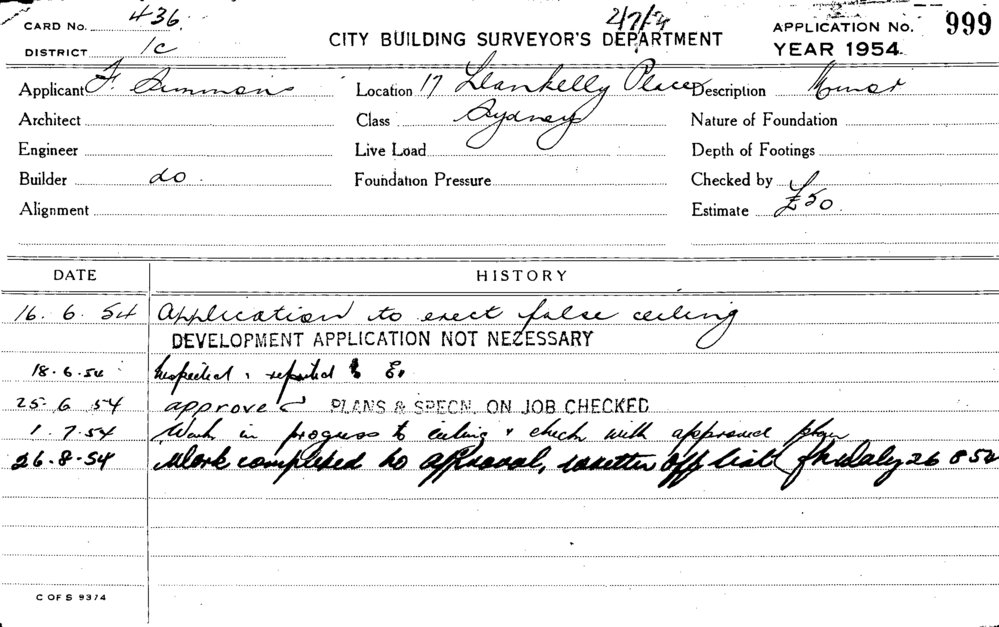 CARD No. 436
DISTRICT 1C
CITY BUILDING SURVEYOR'S DEPARTMENT
APPLICATION No. 999
YEAR 1954
Applicant F. Simmons Location 17 Llankelly Place Description Minor
Architect Class Sydney Nature of Foundation
Engineer Live Load Depth of Footings
Builder do. Foundation Pressure Checked by
Alignment Estimate £50.
DATE HISTORY
16. 6. 54 Application to erect false ceiling
DEVELOPMENT APPLICATION NOT NECESSARY
18.6.54 Inspected & reported to
25.6 54 approved PLANS & SPECN. ON JOB CHECKED
1.7.54 Work in progress to ceiling & check with approved plan
26.8.54 Work completed to approval, written off list 26 8 54
C OF S 9374